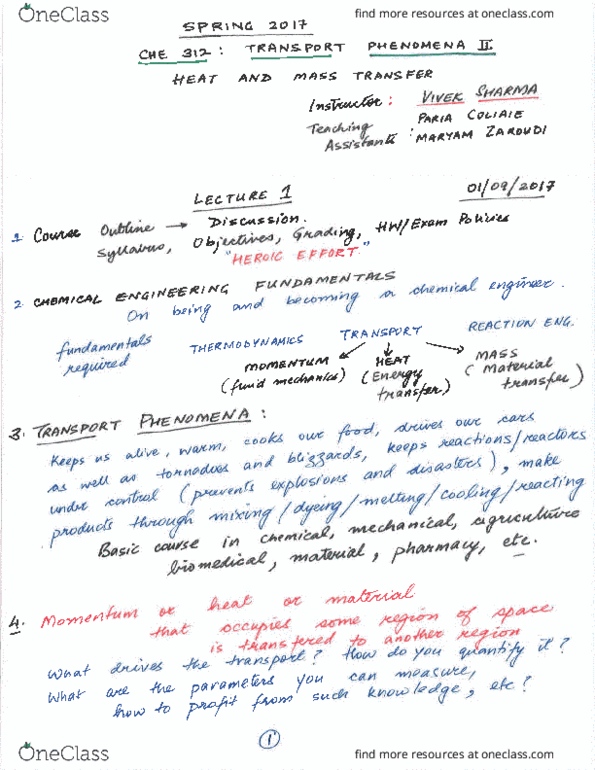 OneClass
find more resources at oneclass.com
SPRING 2017
CHE 312: TRANSPORT PHENOMENA II.
HEAT AND MASS TRANSFER
Instructor: VIVEK SHARMA
Teaching Assistants: PARIA COLIAIE
MARYAM ZAROUDI
LECTURE 1
01/09/2017
1. Course Outline → Discussion.
Syllabus, Objectives, Grading, HW/Exam Policies
"HEROIC EFFORT"
2. CHEMICAL ENGINEERING FUNDAMENTALS
On being and becoming a chemical engineer.
fundamentals required
THERMODYNAMICS TRANSPORT REACTION ENG.
MOMENTUM (fluid mechanics)
HEAT (Energy transfer)
MASS (Material transfer)
3. TRANSPORT PHENOMENA:
Keeps us alive, warm, cooks our food, drives our cars
as well as tornadoes and blizzards, keeps reactions/reactors
under control (prevents explosions and disasters), make
products through mixing/dyeing/melting/cooling/reacting
Basic course in chemical, mechanical, agriculture
biomedical, material, pharmacy, etc.
4. Momentum or heat or material
that occupies some region of space
is transfered to another region
What drives the transport? How do you quantify it?
What are the parameters you can measure,
how to profit from such knowledge, etc?
1
OneClass
find more resources at oneclass.com